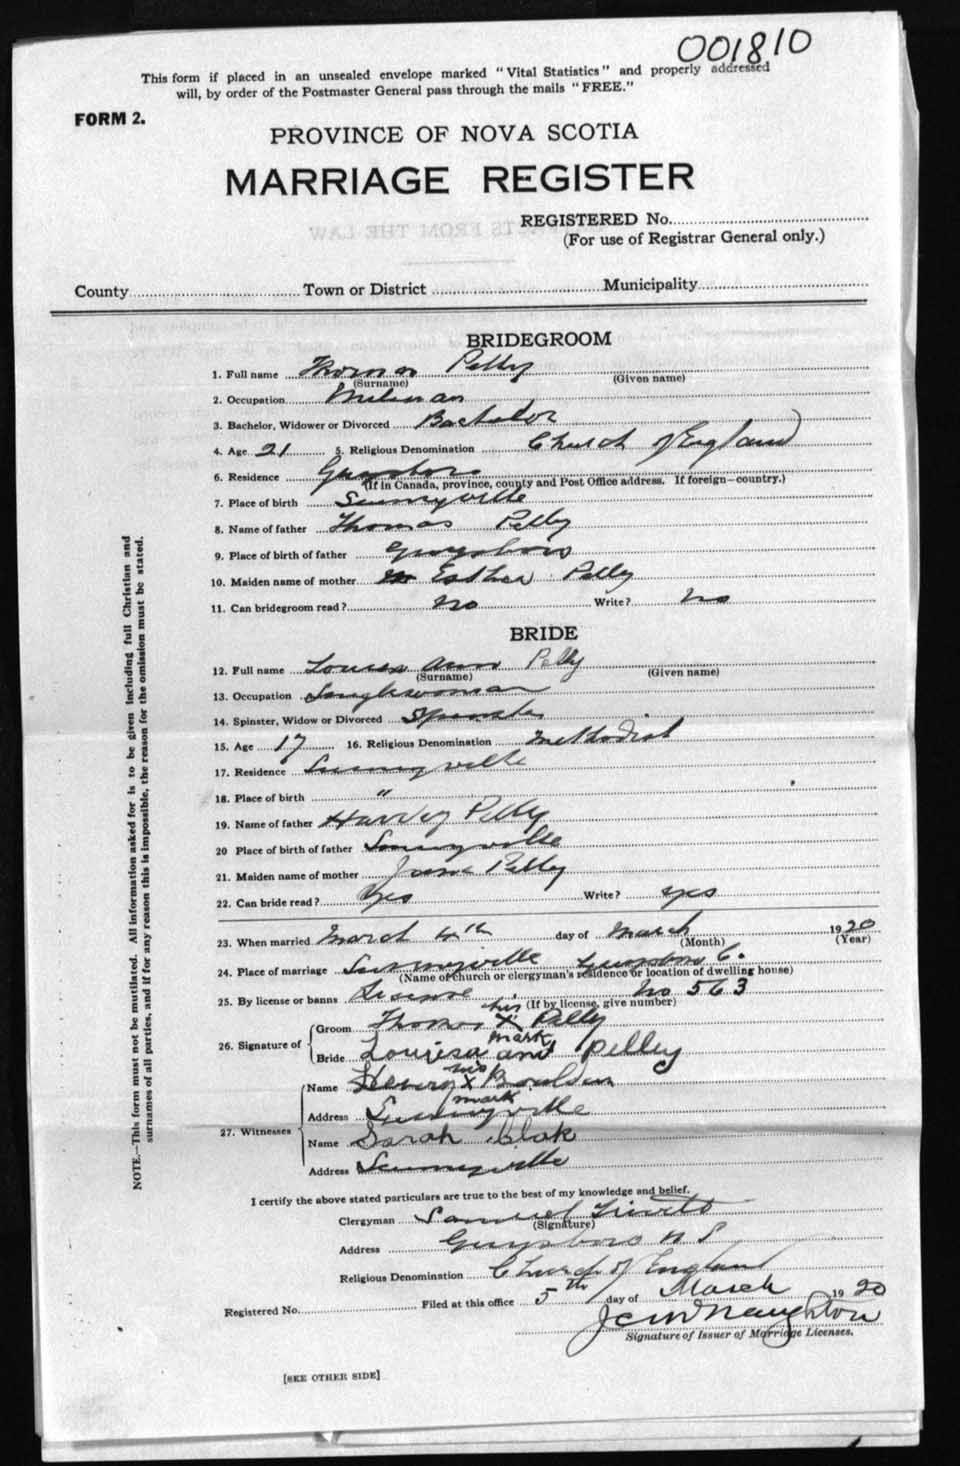 001810
This form if placed in an unsealed envelope marked "Vital Statistics" and properly addressed
will, by order of the Postmaster General pass through the mails "FREE."
FORM 2.
PROVINCE OF NOVA SCOTIA
MARRIAGE REGISTER
REGISTERED No.
(For use of Registrar General only.)
County Town or District Municipality
BRIDEGROOM
1. Full name Thomas Pelly
(Surname) (Given name)
2. Occupation
3. Bachelor, Widower or Divorced Bachelor
4. Age 21 5. Religious Denomination Church of England
6. Residence Guysboro
(If in Canada, province, county and Post Office address. If foreign—country.)
7. Place of birth Sunnyville
8. Name of father Thomas Pelly
9. Place of birth of father Guysboro
10. Maiden name of mother Esther Pelly
11. Can bridegroom read? No Write? No
BRIDE
12. Full name Louisa Ann Pelly
(Surname) (Given name)
13. Occupation
14. Spinster, Widow or Divorced Spinster
15. Age 17 16. Religious Denomination Methodist
17. Residence Sunnyville
18. Place of birth "
19. Name of father Harvey Pelly
20 Place of birth of father Sunnyville
21. Maiden name of mother Jane Pelly
22. Can bride read? Yes Write? yes
23. When married March 4th day of March 1920
(Month) (Year)
24. Place of marriage Sunnyville Guysboro C.
(Name of church or clergyman's residence or location of dwelling house)
25. By license or banns License No 563
(If by license, give number)
26. Signature of
Groom Thomas his X mark Pelly
Bride Louisa ann Pelley
27. Witnesses
Name Henry his X mark
Address Sunnyville
Name Sarah Clak
Address Sunnyville
I certify the above stated particulars are true to the best of my knowledge and belief.
Clergyman Samuel
(Signature)
Address Guysboro N S
Religious Denomination Church of England
Registered No. Filed at this office 5th day of March 1920
J C McNaughton
Signature of Issuer of Marriage Licenses.
[SEE OTHER SIDE]
NOTE.—This form must not be mutilated. All information asked for is to be given including full Christian and
surnames of all parties, and if for any reason this is impossible, the reason for the omission must be stated.